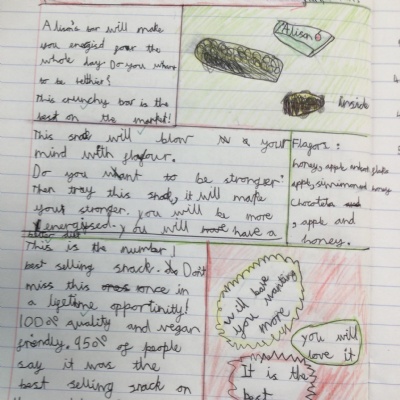 Alison's bar will make
you energisd for the
whole day. Do you whant
to be
This crunchy bar is the
best on the market!
Alison
Inside
This snak will blow your
mind with flavour.
Do you want to be stronger
Then tray this snak, it will make
your stronger. you will be more
energised. you will have a
Flavors:
honey, apple
apple,
Chocolata
, apple and
honey.
This is the number 1
best selling snack. Dont
miss this once in
a lifetime opportunity!
100% quality and vegan
friendly. 95% of people
say it was the
best selling snack on
will have
you wanting
more
you will
love it
It is the
best